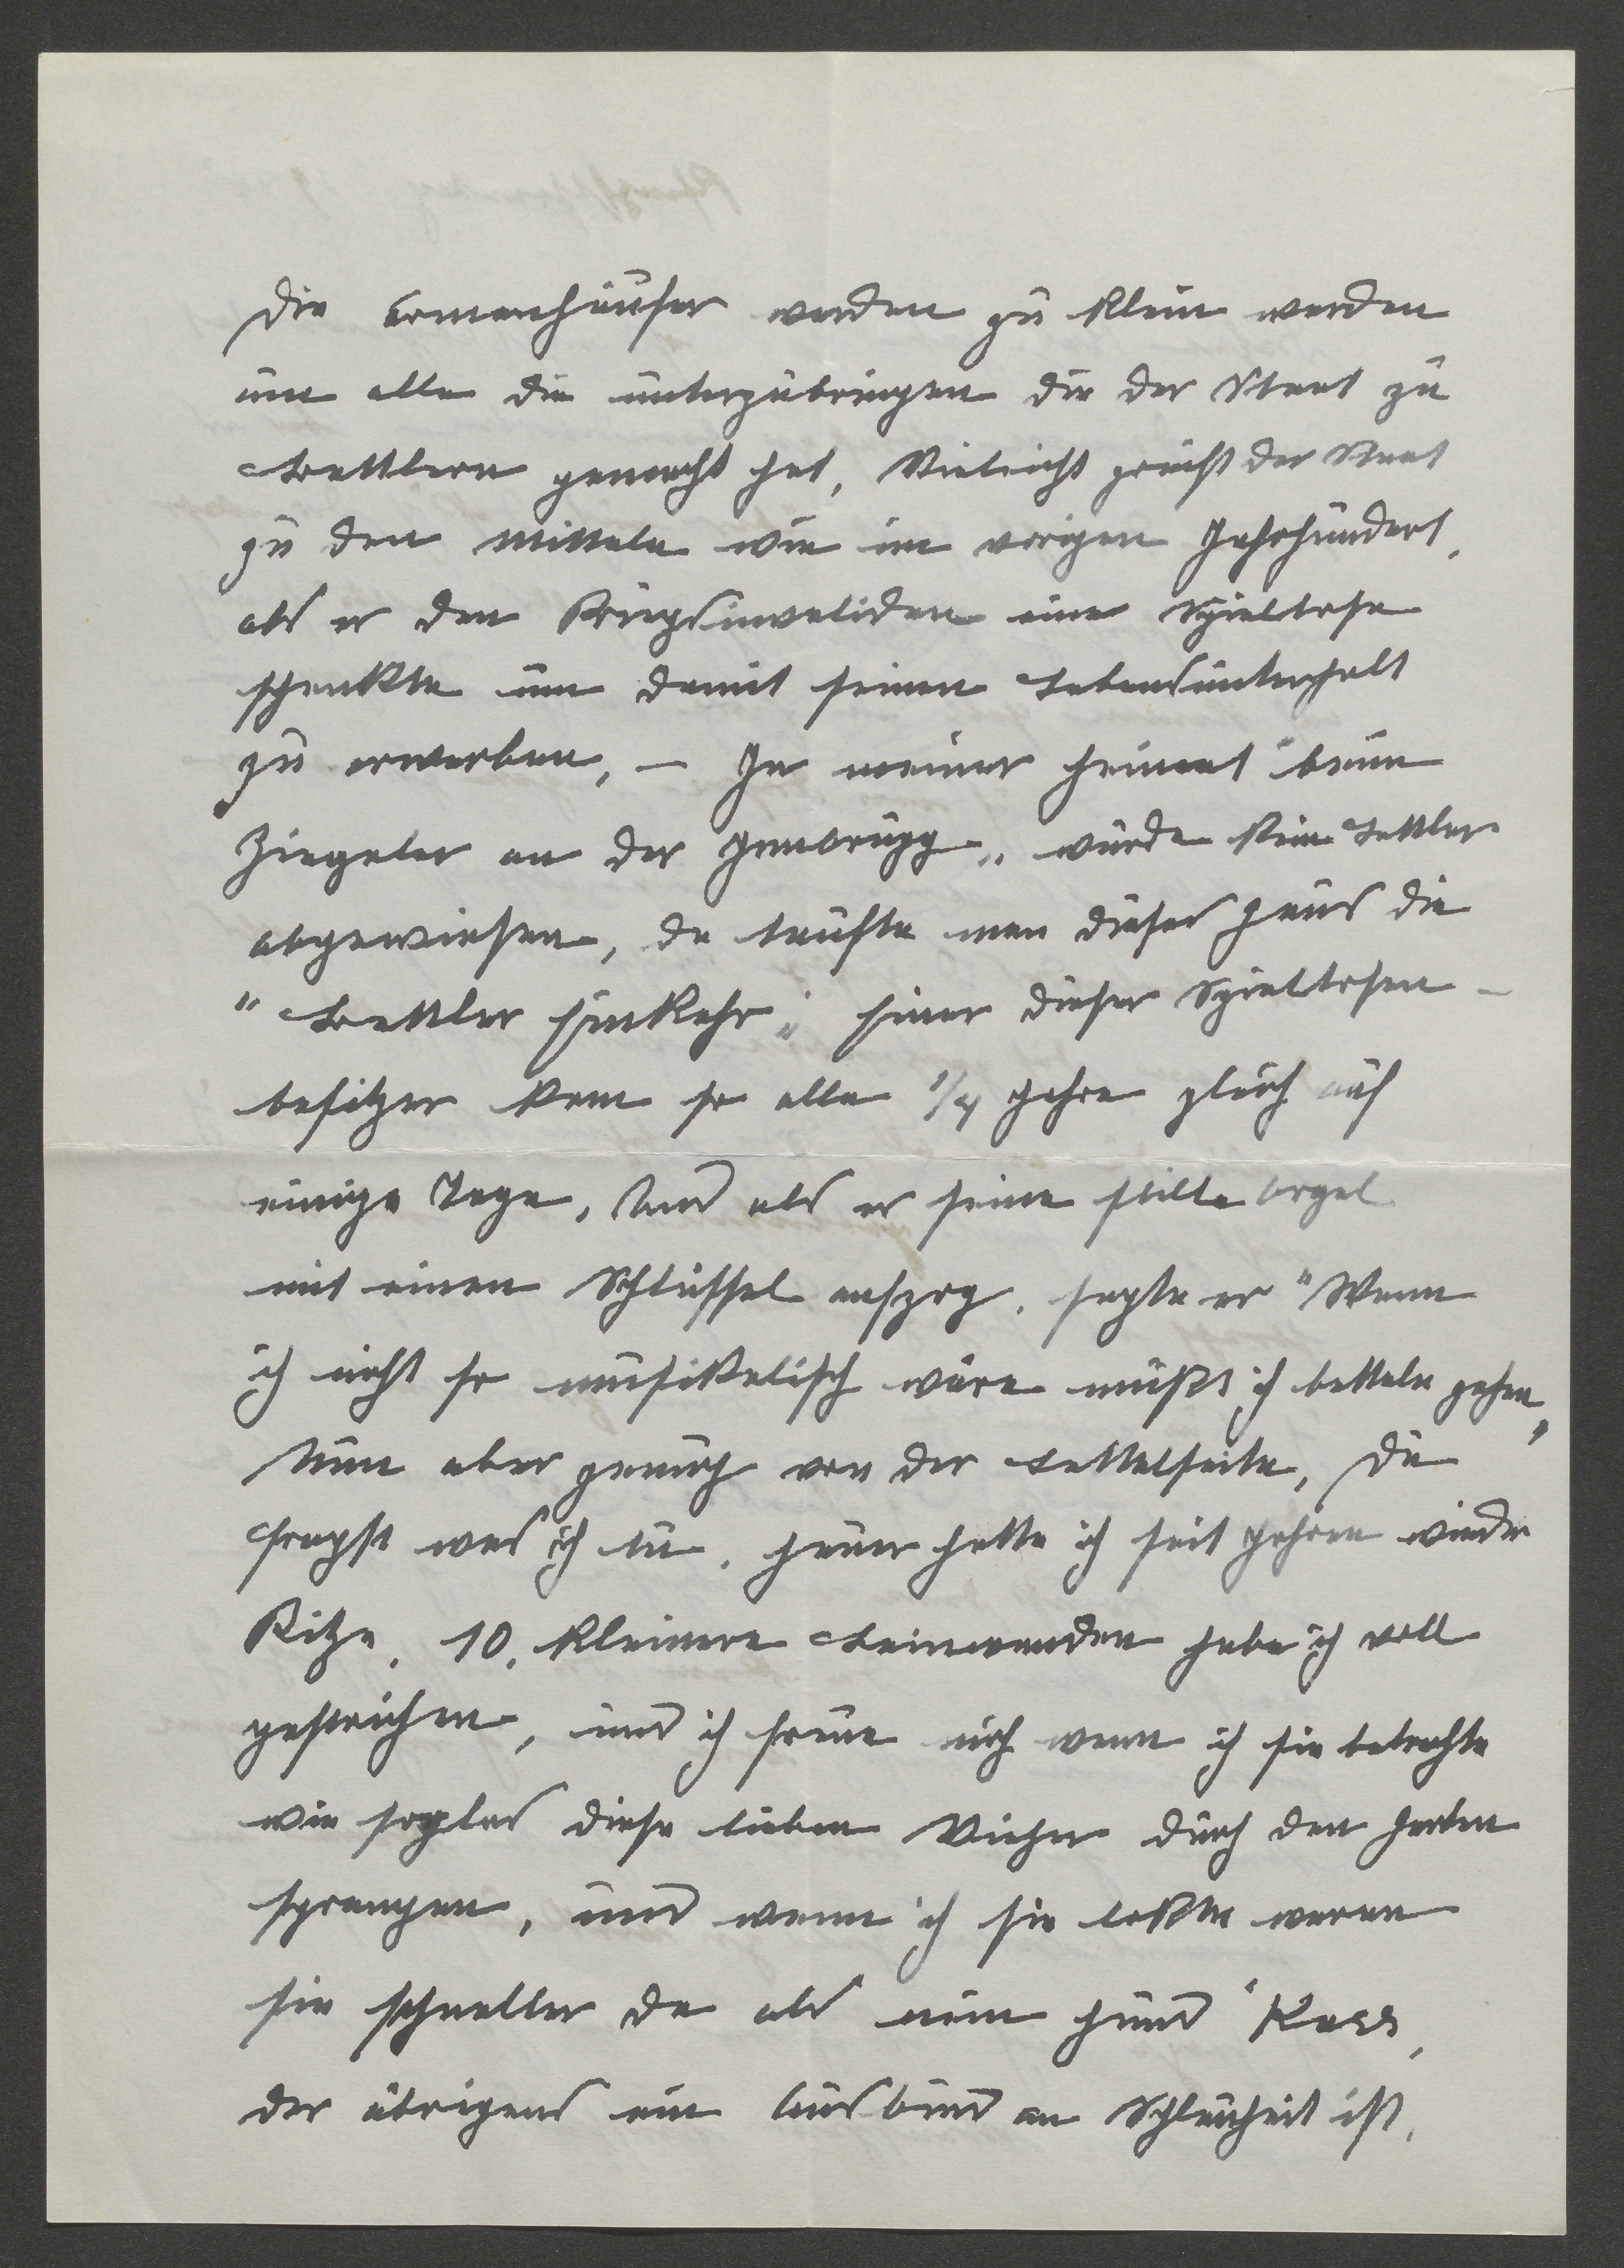 Die Armenhäuser werden zu klein werden
um alle die unterzubringen die der Staat zu
Bettlern gemacht hat, Vieleicht greift der Staat
zu den Mitteln wie im vorigen Jahrhundert,
als er den Kriegsinvaliden eine Spieldose
schenkte um damit seinen Lebensunterhalt
zu erwerben, – In meiner Heimat "beim
Ziegeler an der Innbrügg" wurde kein Bettler
abgewiesen, da taufte man dieses Haus die
"Bettler Einkehr". Einer dieser Spieldosen-
besitzer kam so alle 1/4 Jahre gleich auf
einige Tage, Und als er seine stille Orgel
mit einen Schlüssel aufzog, sagte er "Wenn
ich nicht so musikalisch wäre müßt ich betteln gehen"
Nun aber genug von der Bettelseite, Du
fragst was ich tu. Heuer hatte ich seit Jahren wieder
Kitze, 10, kleinere Leinwanden habe ich voll
gestrichen, und ich freue mich wenn ich sie betrachte
wie sorglos diese lieben Viecher durch den Garten
sprangen, und wenn ich sie lokte waren
sie schneller da als mein Hund "Karr,
der übrigens ein Ausbund an Schlauheit ist,